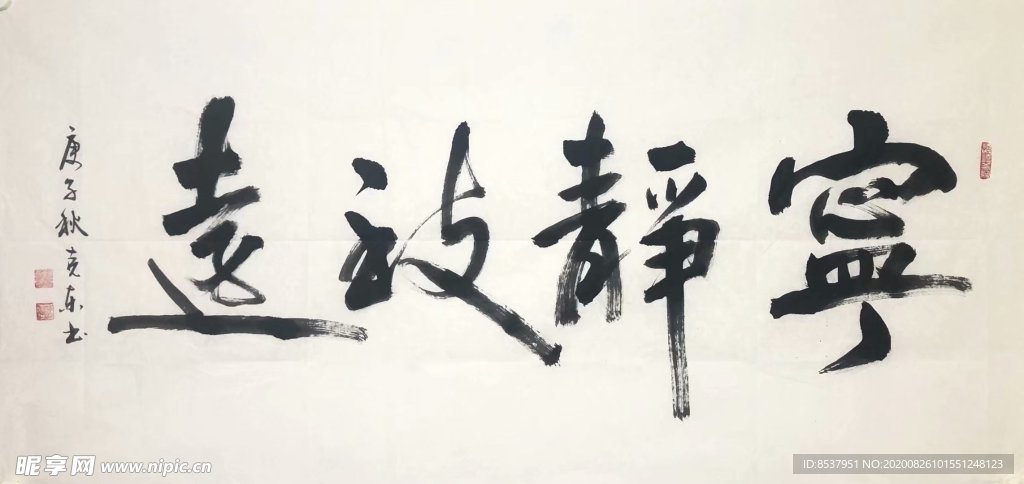 寧靜致遠
庚子秋克东书
昵享网 www.nipic.cn
ID:8537951 NO:20200826101551248123